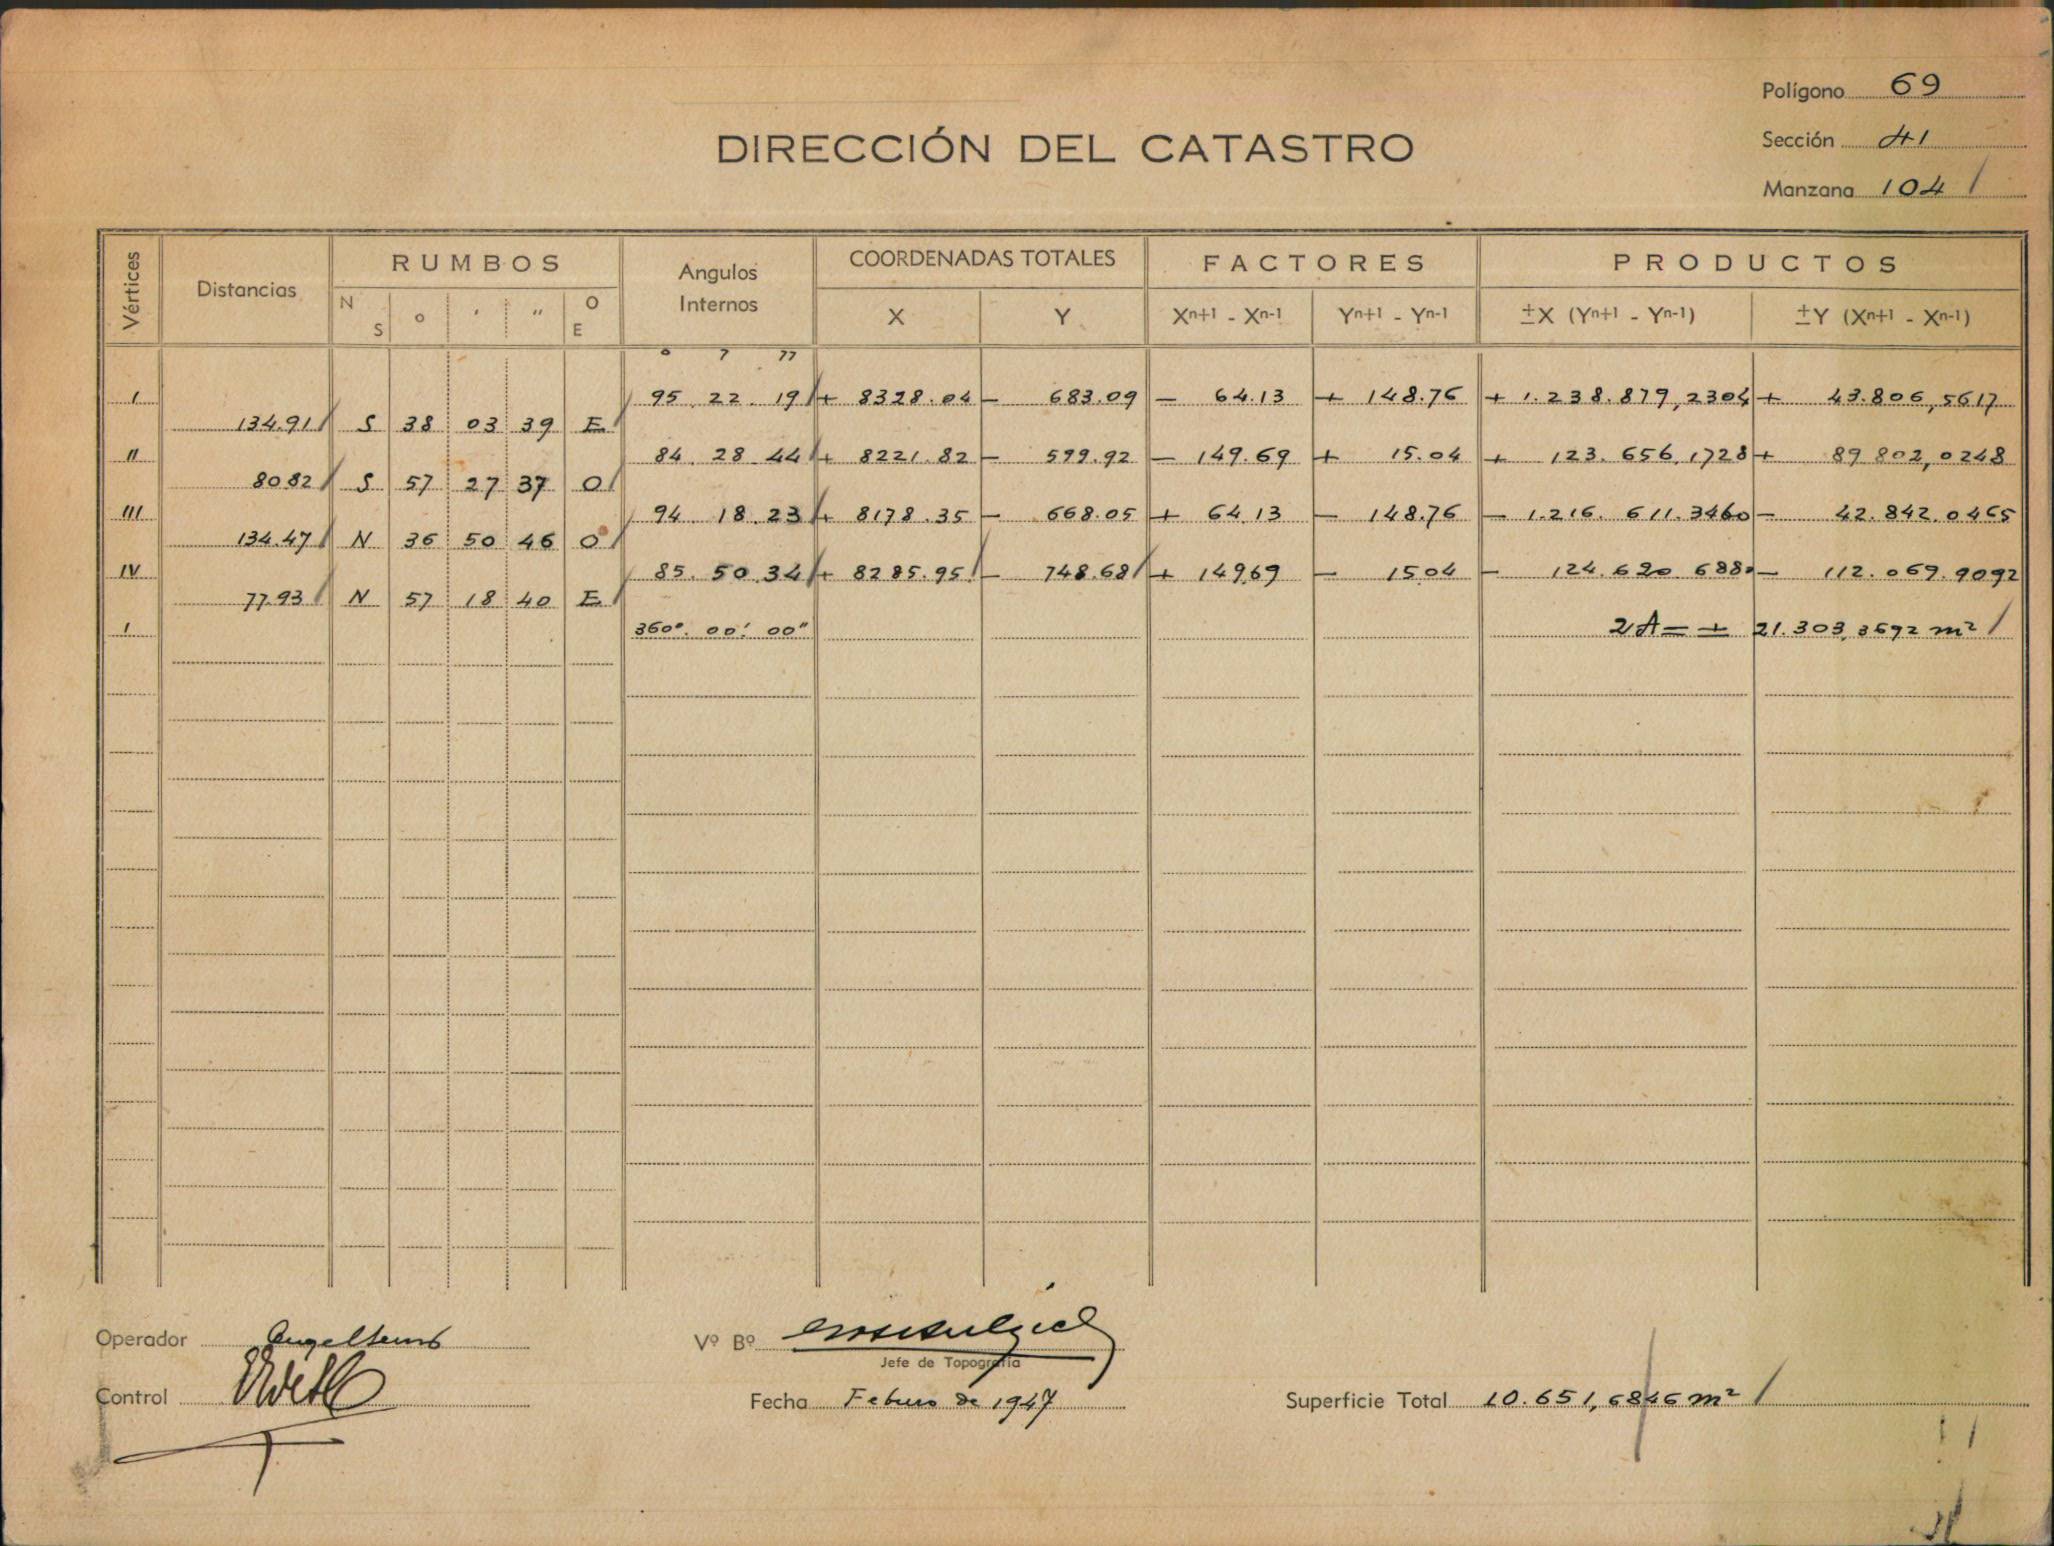 Polígono 69
DIRECCIÓN DEL CATASTRO
Sección 41
Manzana 104
Vértices Distancias RUMBOS Angulos Internos COORDENADAS TOTALES FACTORES PRODUCTOS
N S o ' " O E X Y Xn+1 - Xn-1 Yn+1 - Yn-1 ±X (Yn+1 - Yn-1) ±Y (Xn+1 - Xn-1)
o ' "
I 95 22 19 + 8328.04 - 683.09 - 64.13 + 148.76 + 1.238.879,2304 + 43.806,5617
134.91 S 38 03 39 E
II 84 28 44 + 8221.82 - 599.92 - 149.69 + 15.04 + 123.656,1728 + 89 802,0248
80 82 S 57 27 37 O
III 94 18 23 + 8178.35 - 668.05 + 64.13 - 148.76 - 1.216.611.3460 - 42.842.0465
134.47 N 36 50 46 O
IV 85. 50 34 + 8285.95 - 748.68 + 149.69 - 15.04 - 124.620.6880 - 112.069.9092
77.93 N 57 18 40 E
I 360°. 00'. 00" 2A = + 21.303,3692 m²
Operador
Vº Bº
Jefe de Topografía
Control
Fecha Febrero de 1947
Superficie Total 10.651,6846 m²